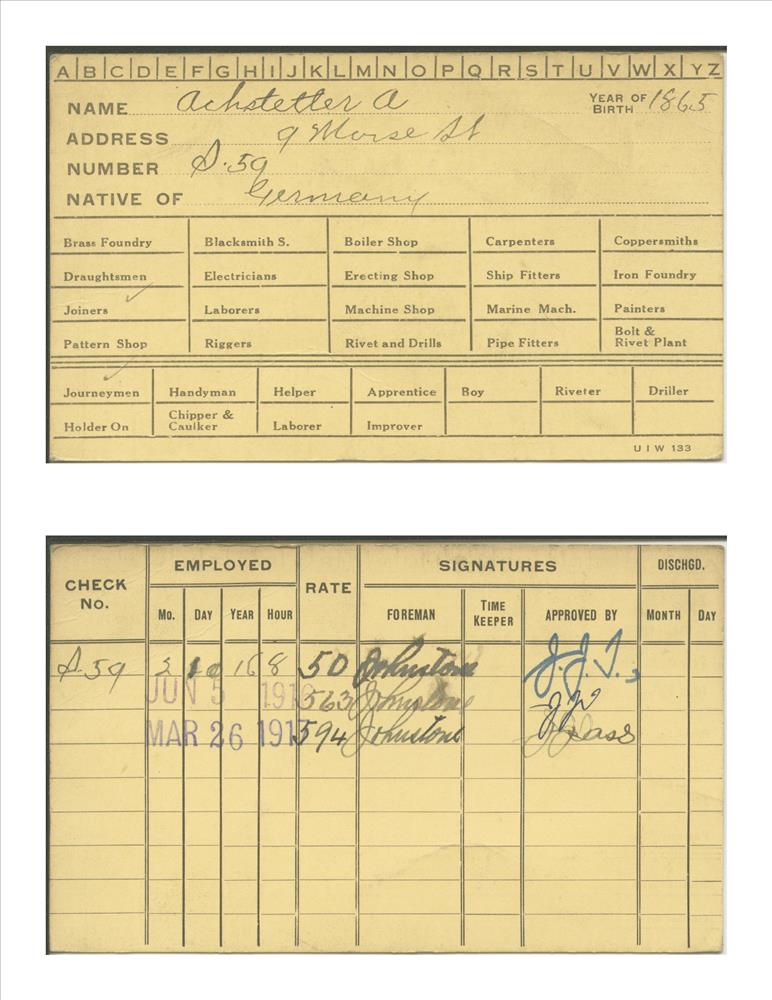 A B C D E F G H I J K L M N O P Q R S T U V W X Y Z
NAME Achstetter A YEAR OF BIRTH 1865
ADDRESS 9 Morse St
NUMBER S.59
NATIVE OF Germany
Brass Foundry Blacksmith S. Boiler Shop Carpenters Coppersmiths
Draughtsmen Electricians Erecting Shop Ship Fitters Iron Foundry
Joiners ✓ Laborers Machine Shop Marine Mach. Painters
Pattern Shop Riggers Rivet and Drills Pipe Fitters Bolt & Rivet Plant
Journeymen ✓ Handyman Helper Apprentice Boy Riveter Driller
Holder On Chipper & Caulker Laborer Improver
U I W 133
CHECK No. EMPLOYED RATE SIGNATURES DISCHGD.
Mo. DAY YEAR HOUR FOREMAN TIME KEEPER APPROVED BY MONTH DAY
S.59 3 10 16 8 50 Johnstone J.J.T.
JUN 5 191 563 Johnstone
MAR 26 1917 594 Johnstone